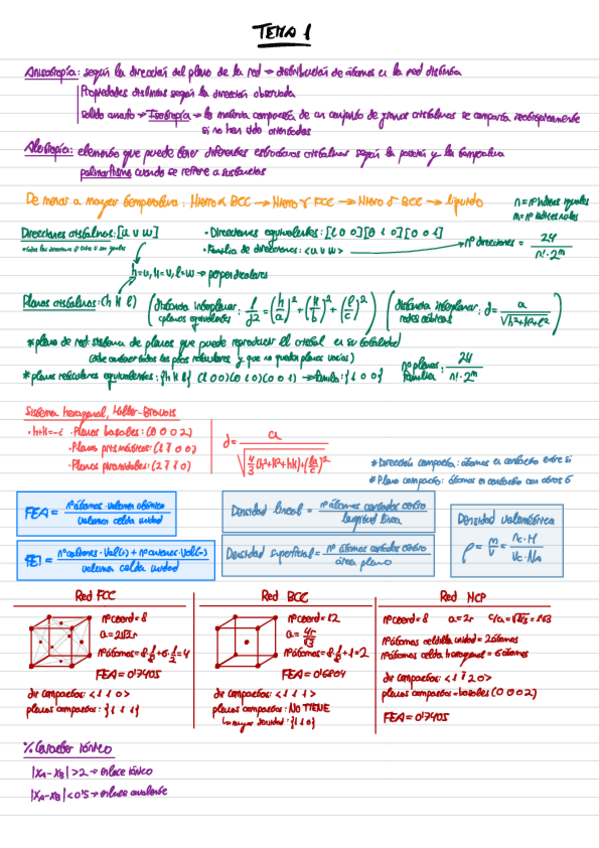 TEMA 1
Anisotropía: según la dirección del plano de la red → distribución de átomos en la red distinta
Propiedades distintas según la dirección observada
Sólido amorfo → Isotropía → la materia compuesta de un conjunto de granos cristalinos se comporta isotrópicamente
si no han sido orientados
Alotropía: elementos que puede tener diferentes estructuras cristalinas según la presión y la temperatura
polimorfismo cuando se refiere a sustancias
De menor a mayor temperatura: Hierro α BCC → Hierro γ FCC → Hierro δ BCC → líquido
n = nº índices iguales
m = nº índices nulos
Direcciones cristalinas: [u v w]
· Direcciones equivalentes: [1 0 0] [0 1 0] [0 0 1]
· Familia de direcciones: <u v w> → nº direcciones = 24 / n!·2^m
h=u, k=v, l=w → perpendiculares
Planos cristalinos: (h k l) (distancia interplanar: 1/d² = (h/a)² + (k/b)² + (l/c)²) (distancia interplanar: d = a/√h²+k²+l²)
planos equivalentes redes cúbicas
* plano de red: sistema de planos que puede reproducir el cristal en su totalidad
(debe contener todos los ptos reticulares y que no queden planos vacíos)
* planos reticulares equivalentes: {h k l} (1 0 0) (0 1 0) (0 0 1) → familia: {1 0 0}
nº planos familia: 24 / n!·2^m
Sistema hexagonal, Miller-Bravais
· h+k=-i · Planos basales: (0 0 0 2)
· Planos prismáticos: (1 1 0 0)
· Planos piramidales: (2 1 1 0)
d = a / √4/3 (h²+k²+hk)+(la/c)²
* Dirección compacta: átomos en contacto entre sí
* Plano compacto: átomos en contacto con otros 6
FEA = nº átomos · volumen atómico / volumen celda unidad
FEI = nº cationes · Vol(+) + nº aniones · Vol(-) / volumen celda unidad
Densidad lineal = nº átomos cortados centro / longitud línea
Densidad superficial = nº átomos cortados centro / área plano
Densidad volumétrica
ρ = m/V = nc·M / Vc·NA
Red FCC
nº coord = 8
a = 2√2r
nº átomos = 8·1/8+6·1/2=4
FEA = 0'7405
dir compactas: <1 1 0>
planos compactos: {1 1 1}
Red BCC
nº coord = 12
a = 4r/√3
nº átomos = 8·1/8+1=2
FEA = 0'6804
dir compactas: <1 1 1>
planos compactos: NO TIENE
↳ mayor densidad: {1 1 0}
Red HCP
nº coord = 8 a = 2r c/a = √8/3 = 1'63
nº átomos celdilla unidad = 2 átomos
nº átomos celda hexagonal = 6 átomos
dir compactas: <1 1 2 0>
planos compactos = basales (0 0 0 2)
FEA = 0'7405
% Carácter iónico
|XA-XB|>2 → enlace iónico
|XA-XB|<0'5 → enlace covalente